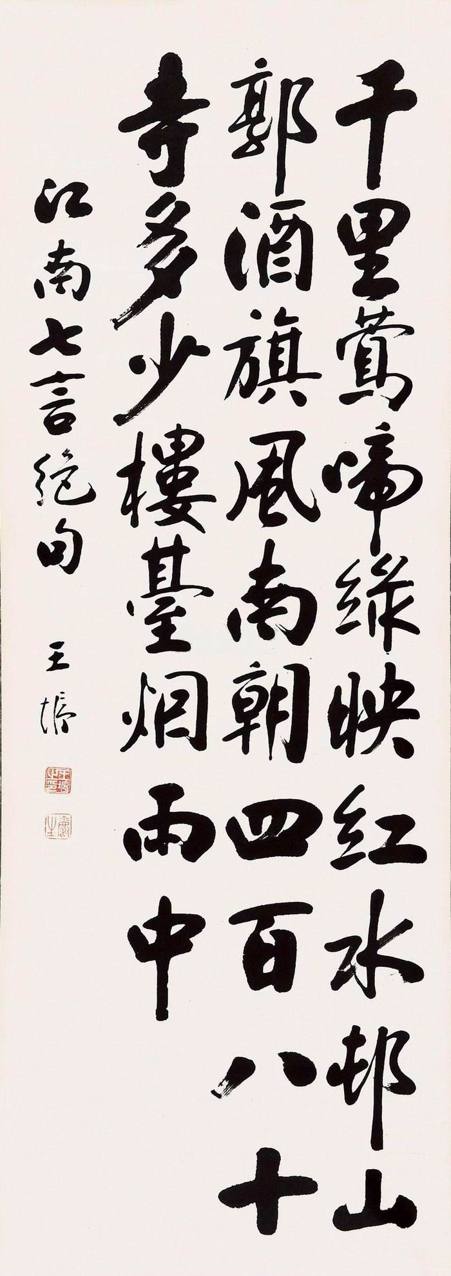 千里鶯啼綠映紅水邨山
郭酒旗風南朝四百八十
寺多少樓臺烟雨中
江南七言絶句 王